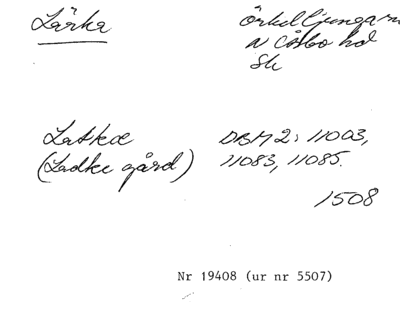 Lärka
Örkelljunga
N Åsbo hd
Sk
Latkæ
(Ladke gård)
DBM 2: 11003,
11083, 11085.
1508
Nr 19408 (ur nr 5507)